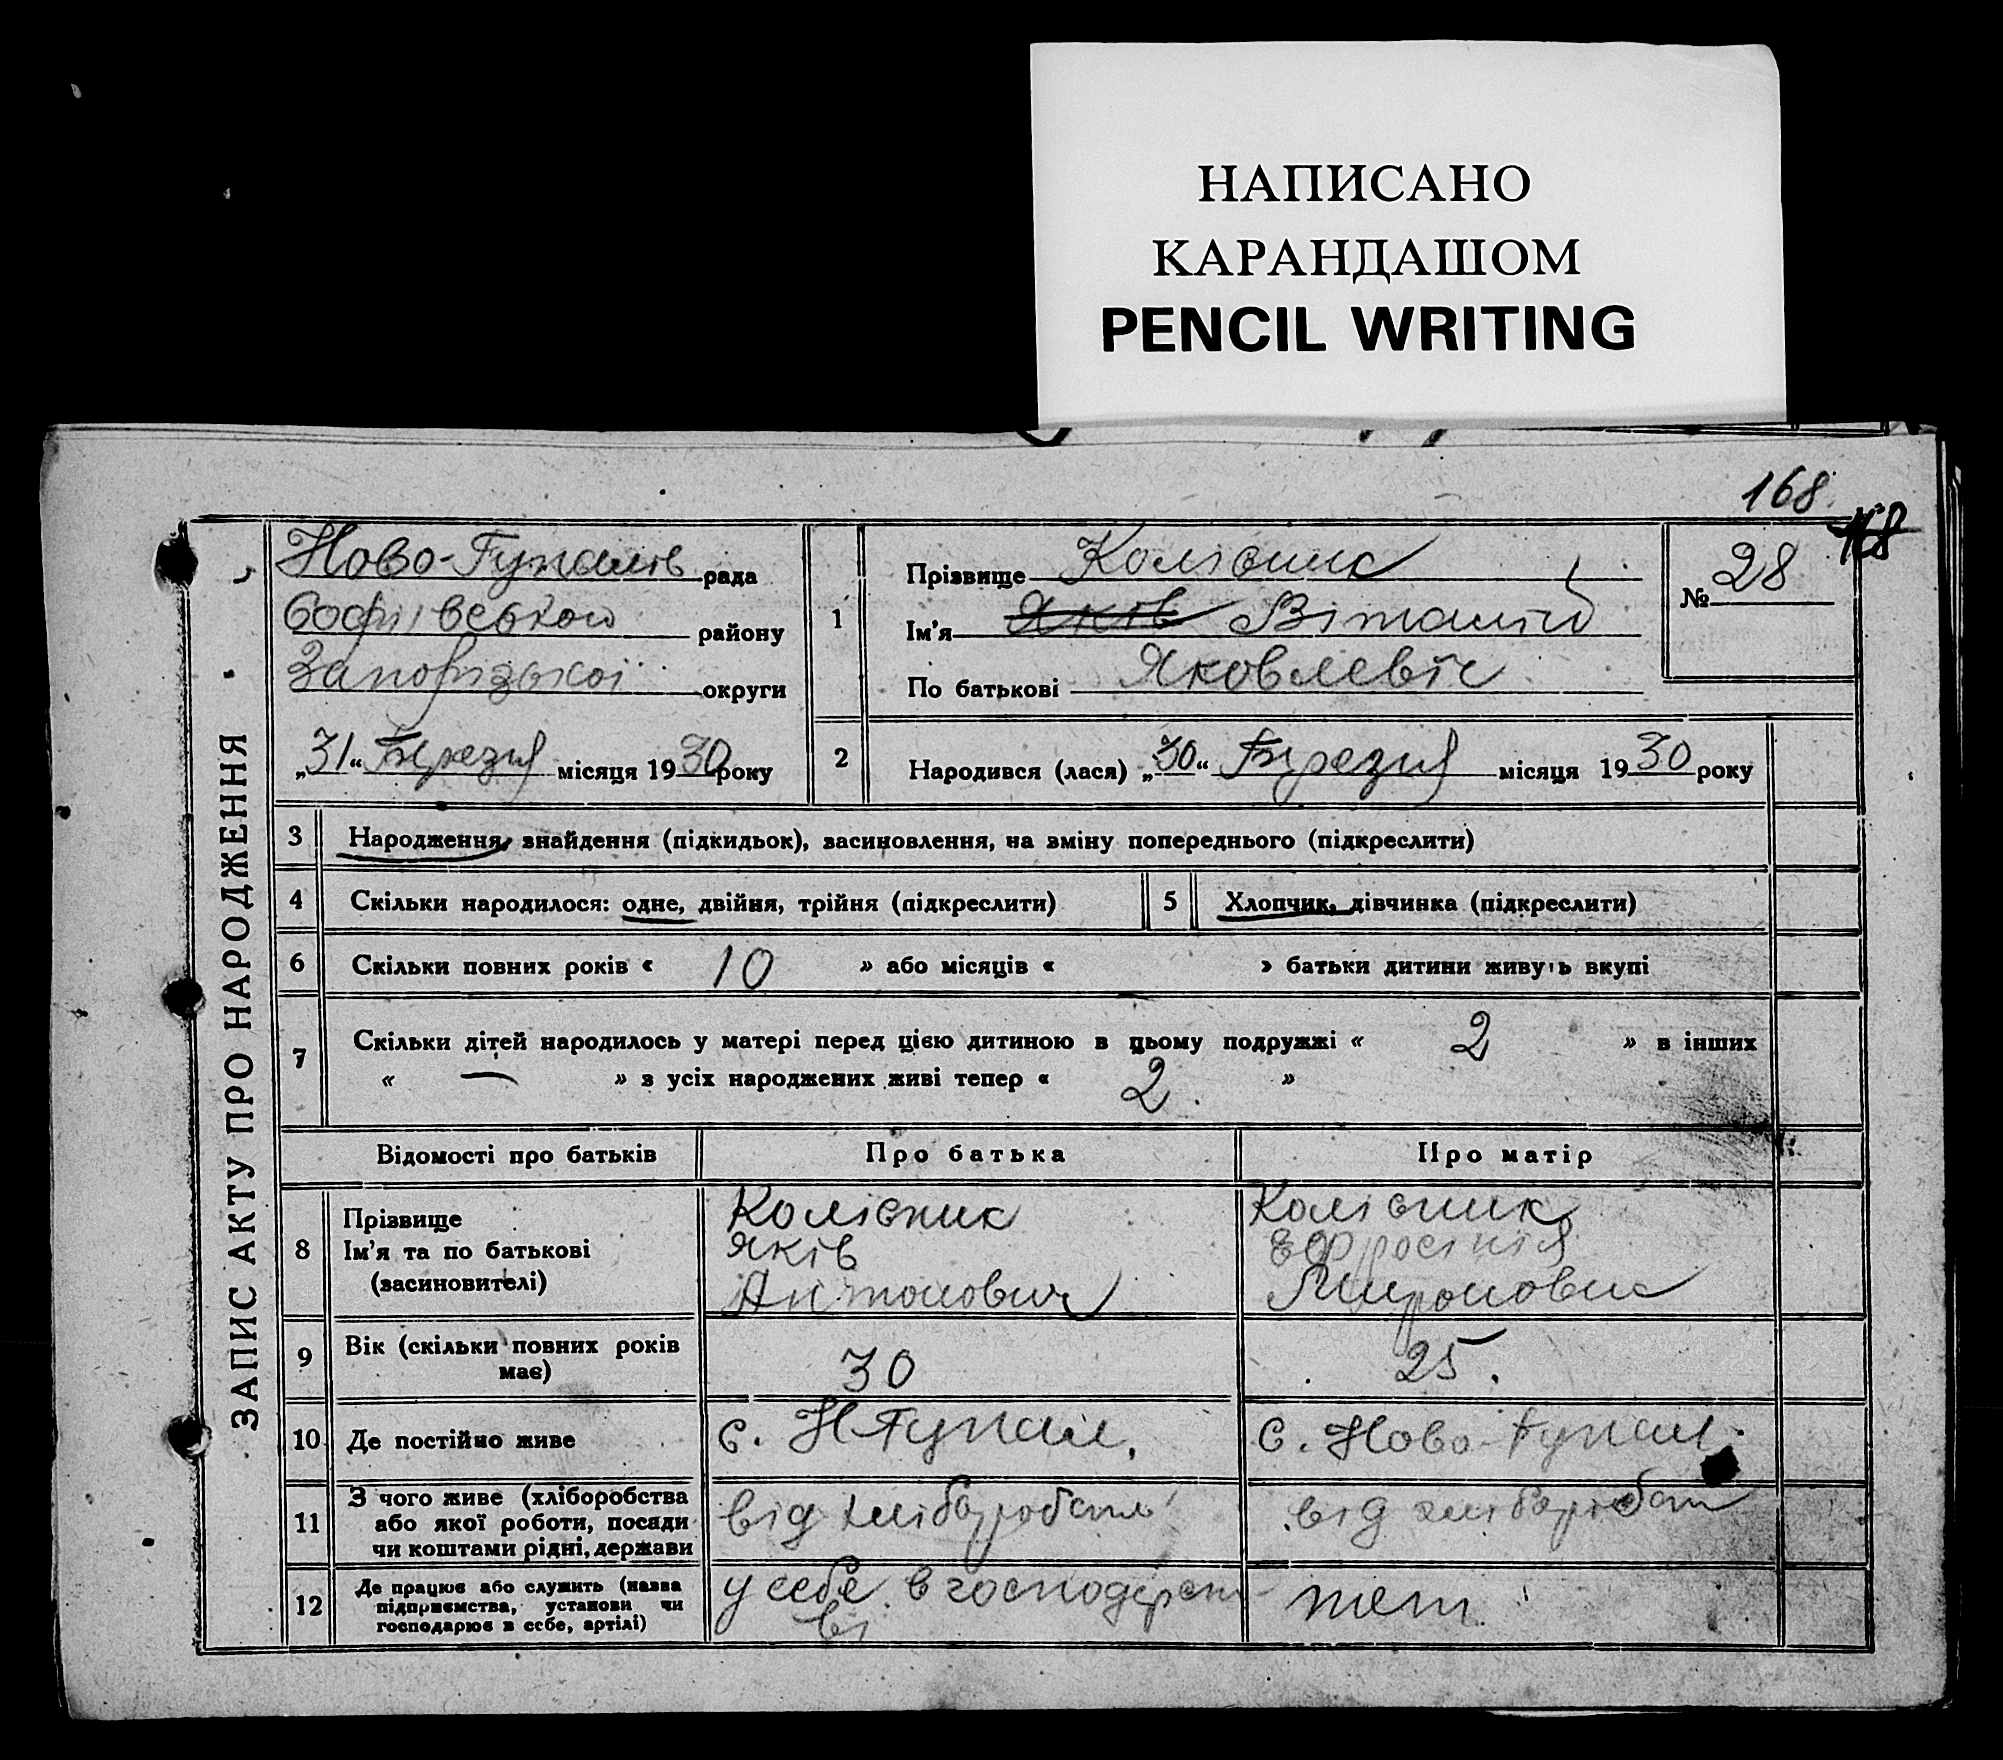 НАПИСАНО
КАРАНДАШОМ
PENCIL WRITING
168
168
ЗАПИС АКТУ ПРО НАРОДЖЕННЯ
Ново-Гупалів рада
Софіївського району
Запорізької округи
„31“ Березня місяця 1930 року
1
Прізвище Колісник
Ім'я Яків Віталій
По батькові Яковлевіч
№ 28
2 Народився (лася) „30“ Березня місяця 1930 року
3 Народження, знайдення (підкидьок), засиновлення, на зміну попереднього (підкреслити)
4 Скільки народилося: одне, двійня, трійня (підкреслити)
5 Хлопчик, дівчинка (підкреслити)
6 Скільки повних років « 10 » або місяців « » батьки дитини живуть вкупі
7 Скільки дітей народилось у матері перед цією дитиною в цьому подружжі « 2 » в інших
« — » з усіх народжених живі тепер « 2. »
Відомості про батьків Про батька Про матір
8 Прізвище Ім'я та по батькові (засиновителі)
Колісник
Яків
Антонович
Колісник
Ефросінія
Мироновна
9 Вік (скільки повних років має) 30 25.
10 Де постійно живе с. Н Гупал. с. Ново-Гупал.
11 З чого живе (хліборобства або якої роботи, посади чи коштами рідні, держави
від хліборобст від хліборобст
12 Де працює або служить (назва підприємства, установи чи господарює в себе, артілі)
у себе в господарст-
ві
теш